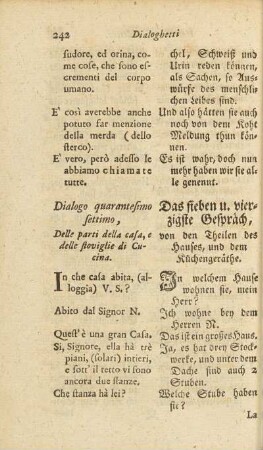 242 Dialoghetti
sudore, ed orina, co-
me cose, che sono es-
crementi del corpo
umano.
E' così averebbe anche
potuto far menzione
della merda (dello
sterco).
E' vero, però adesso le
abbiamo chiamate
tutte.
Dialogo quarantesimo
settimo,
Delle parti della casa, e
delle stoviglie di Cu-
cina.
In che casa abita, (al-
loggia) V. S.?
Abito dal Signor N.
Quest'è una gran Casa.
Sì, Signore, ella hà trè
piani, (solari) intieri,
e sott' il tetto vi sono
ancora due stanze.
Che stanza hà lei?
chel, Schweiß und
Urin reden können,
als Sachen, so Aus-
würfe des menschli-
chen Leibes sind.
Und also hätten sie auch
noch von dem Koht
Meldung thun kön-
nen.
Es ist wahr, doch nun
mehr haben wir sie al-
le genennt.
Das sieben u. vier-
zigste Gespräch,
von den Theilen des
Hauses, und dem
Küchengeräthe.
In welchem Hause
wohnen sie, mein
Herr?
Ich wohne bey dem
Herren N.
Das ist ein großes Haus.
Ja, es hat drey Stock-
werke, und unter dem
Dache sind auch 2
Stuben.
Welche Stube haben
sie?
La